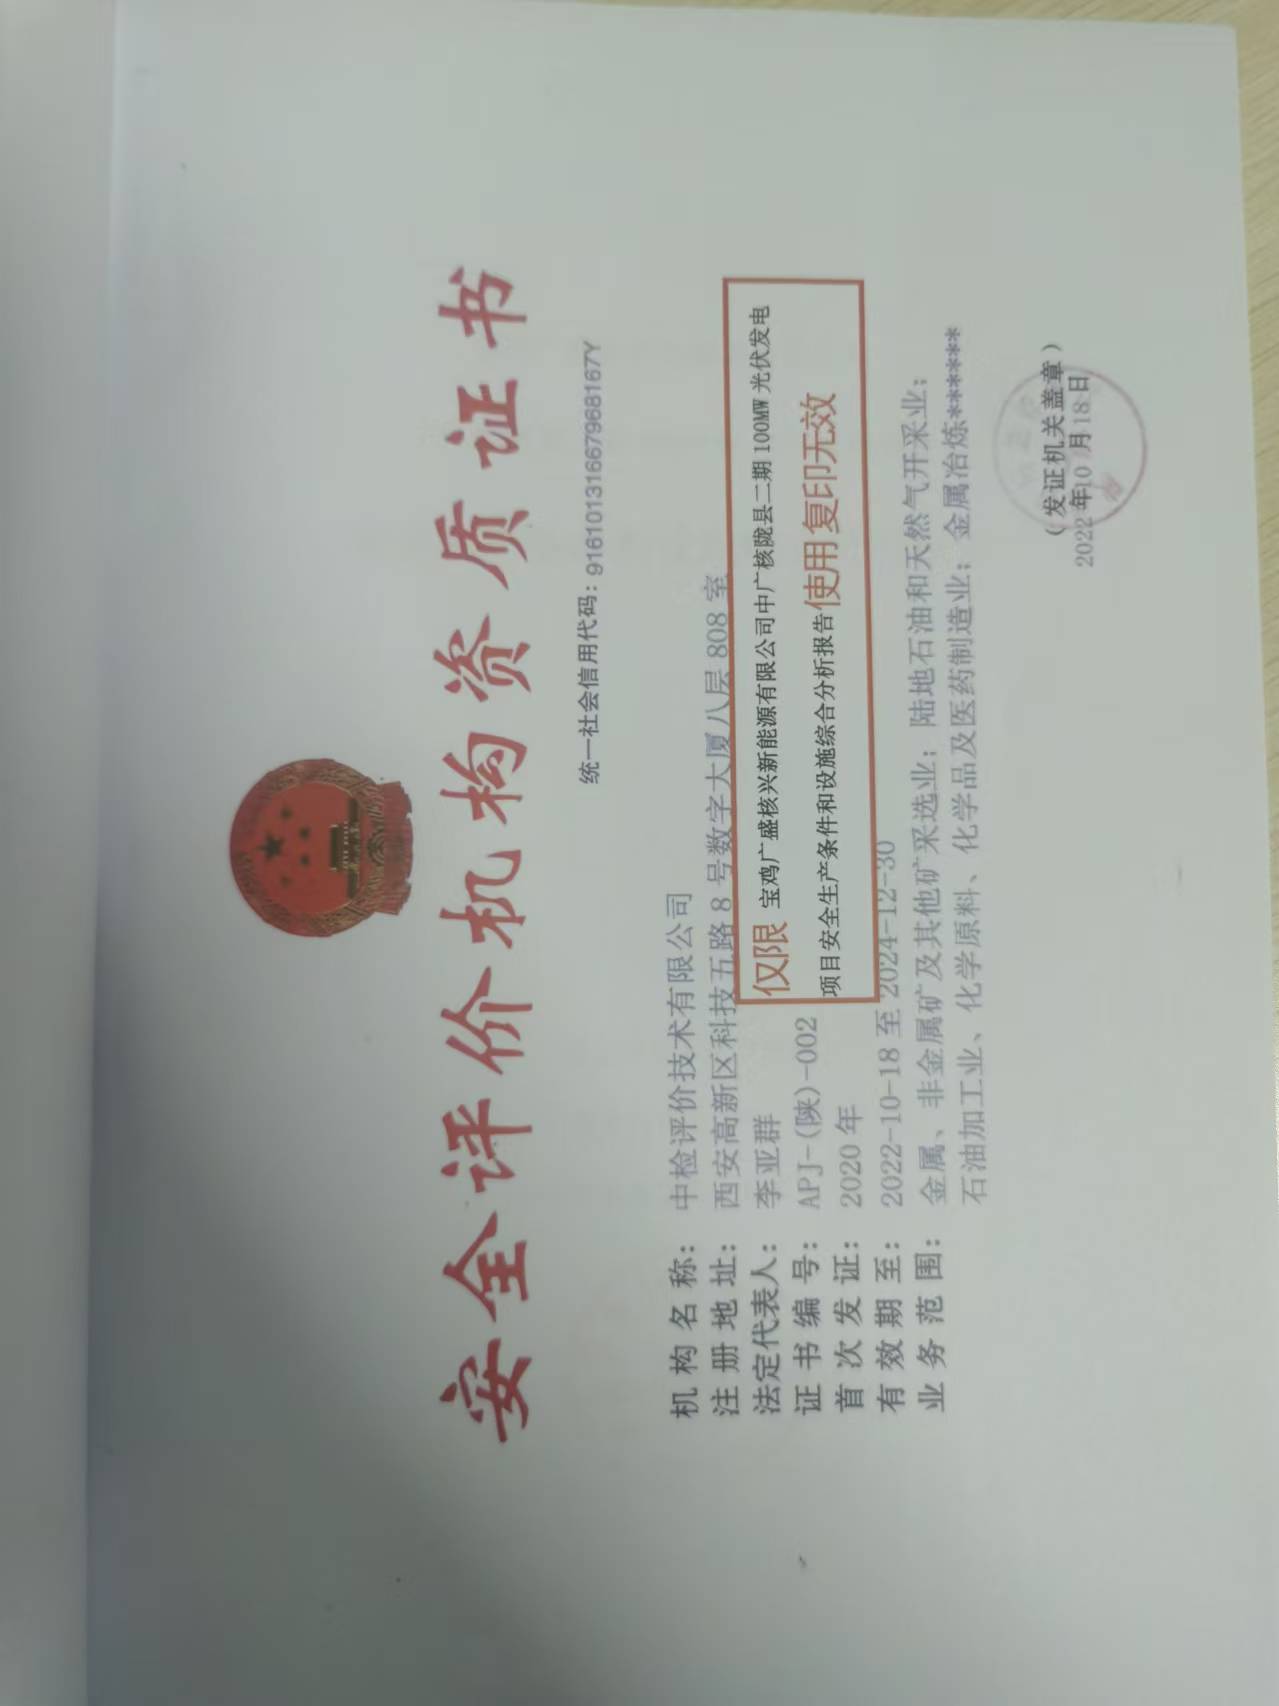 安全评价机构资质证书
统一社会信用代码：91610131667968167Y
机构名称：中检评价技术有限公司
注册地址：西安高新区科技五路8号数字大厦八层808室
法定代表人：李亚群
证书编号：APJ-(陕)-002
首次发证：2020年
有效期至：2022-10-18至2024-12-30
业务范围：金属、非金属矿及其他矿采选业；陆地石油和天然气开采业；
石油加工业、化学原料、化学品及医药制造业；金属冶炼*******
仅限 宝鸡广盛核兴新能源有限公司中广核陇县二期100MW光伏发电
项目安全生产条件和设施综合分析报告使用 复印无效
（发证机关盖章）
2022年10月18日